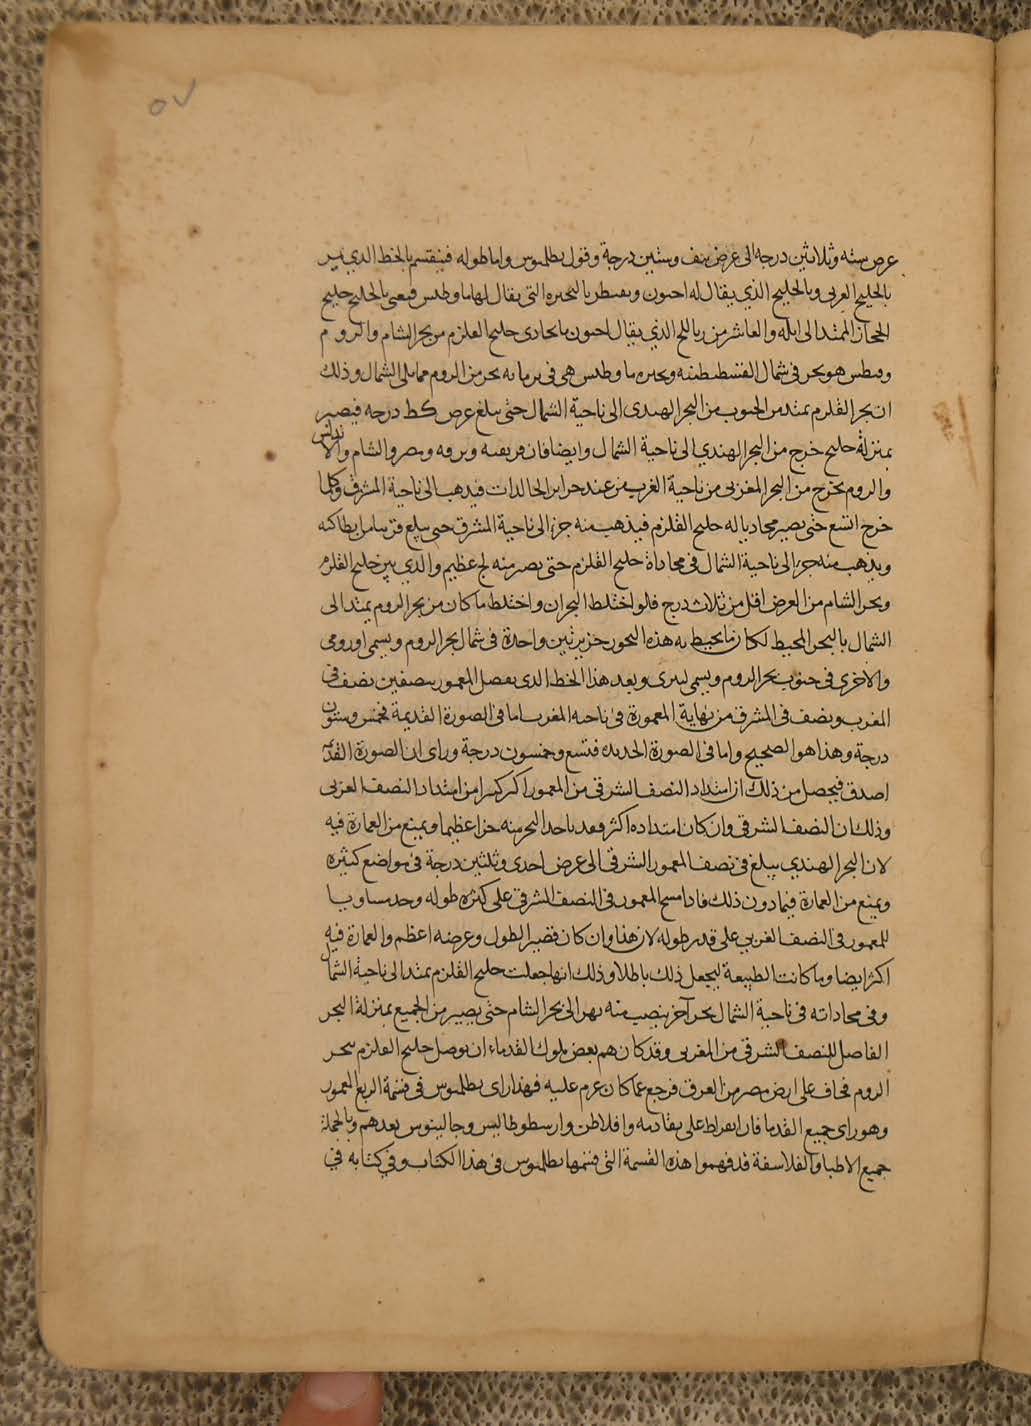 ٥٧
عرض سته وثلاثين درجه الى عرض نيف وستين درجة وقول بطلميوس واما طوله فينقسم بالخط الذي يمر
بالخليج العربي وبالخليج الذي يقال له احيون وبنطس بالبحيره التي يقال لها ماوطيس فيعني بالخليج خليج
الحجاز الممتد الى ايله والعاشر من الذي يقال احيون ما يحاذى خليج القلزم من بحر الشام والروم
وبنطس هو بحر في شمال القسطنطينه وبحيره ماوطيس هي في بحر من الروم مما يلى الشمال وذلك
ان بحر القلزم يمتد من الجنوب من البحر الهندى الى ناحية الشمال حتى يبلغ عرض كط درجه فيصير
بمنزلة خليج خرج من البحر الهندي الى ناحية الشمال وايضا فان افريقيه وبرقه ومصر والشام والاندلس
والروم يخرج من البحر المغربى من ناحية الغرب من عند جزاير الخالدات فيذهب الى ناحية المشرق وكلما
خرج اتسع حتى يصير محاذيا له خليج القلزم فيذهب منه جزء الى ناحية المشرق حتى يبلغ قريبا من انطاكيه
ويذهب منه جزء الى ناحية الشمال في محاذاة خليج القلزم حتى يصير منه لج عظيم والذي بين خليج القلزم
وبحر الشام من العرض اقل من ثلاث درج فلو اختلط البحران واختلط ما كان من بحر الروم يمتد الى
الشمال بالبحر المحيط لكان ما يحيط به هذه البحور جزيرتين واحدة في شمال بحر الروم ويسمى اوروفى
والاخرى في جنوب بحر الروم ويسمى ليبرى وبعد هذا الخط الذى يفصل المعمور بنصفين نصف في
المغرب ونصف في المشرق من نهاية المعمورة في ناحيه المغرب اما في الصورة القديمة فخمس وستون
درجة وهذا هو الصحيح واما في الصورة الحديثه فتسع وخمسون درجة وراى ان الصورة القديمه
اصدق فيحصل من ذلك ان امتداد النصف الشرقي من المعمور اكثر كثيرا من امتداد النصف الغربى
وذلك ان النصف الشرقي وان كان امتداده اكثر فقد ياخذ البحر منه جزا عظيما ويمنع من العمارة فيه
لان البحر الهندي يبلغ في نصف المعمور الشرقي الى عرض احدى وثلثين درجة في مواضع كثيره
ويمنع من العمارة فيما دون ذلك فاذا مسح المعمور في النصف الشرقي على كثره طوله وجد مساويا
للمعمور في النصف الغربي على قدر طوله لان هذا وان كان قصير الطول وعرضه اعظم والعمارة فيه
اكثر ايضا وما كانت الطبيعة ليجعل ذلك باطلا وذلك انها جعلت خليج القلزم يمتد الى ناحية الشمال
وفي محاذاته في ناحية الشمال بحر آخر ينصب منه نهر الى بحر الشام حتى يصير من الجميع بمنزلة البحر
الفاصل للنصف الشرقي من المغربي وقد كان هم بعض ملوك القدماء ان يوصل خليج القلزم ببحر
الروم فخاف على ارض مصر من الغرق فرجع عما كان عزم عليه فهذا راى بطلميوس في قسمة الربع المعمور
وهو راى جميع القدما فان ابقراط على تقادمه وافلاطن وارسطوطاليس وجالينوس بعدهم وبالجملة
جميع الاطبا والفلاسفة قد فهموا هذه القسمة التي قسمها بطلميوس في هذا الكتاب وفي كتابه في